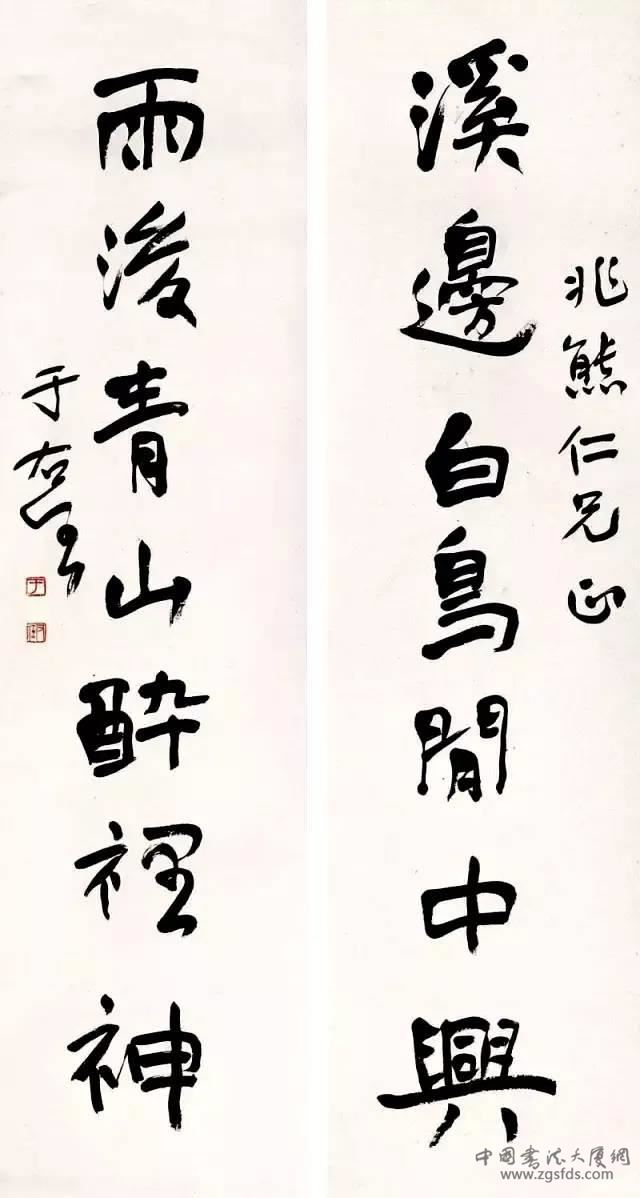 兆熊仁兄正
溪邊白鳥閒中興
雨後青山醉裡神
于右任
中国书法大厦網
www.zgsfds.com